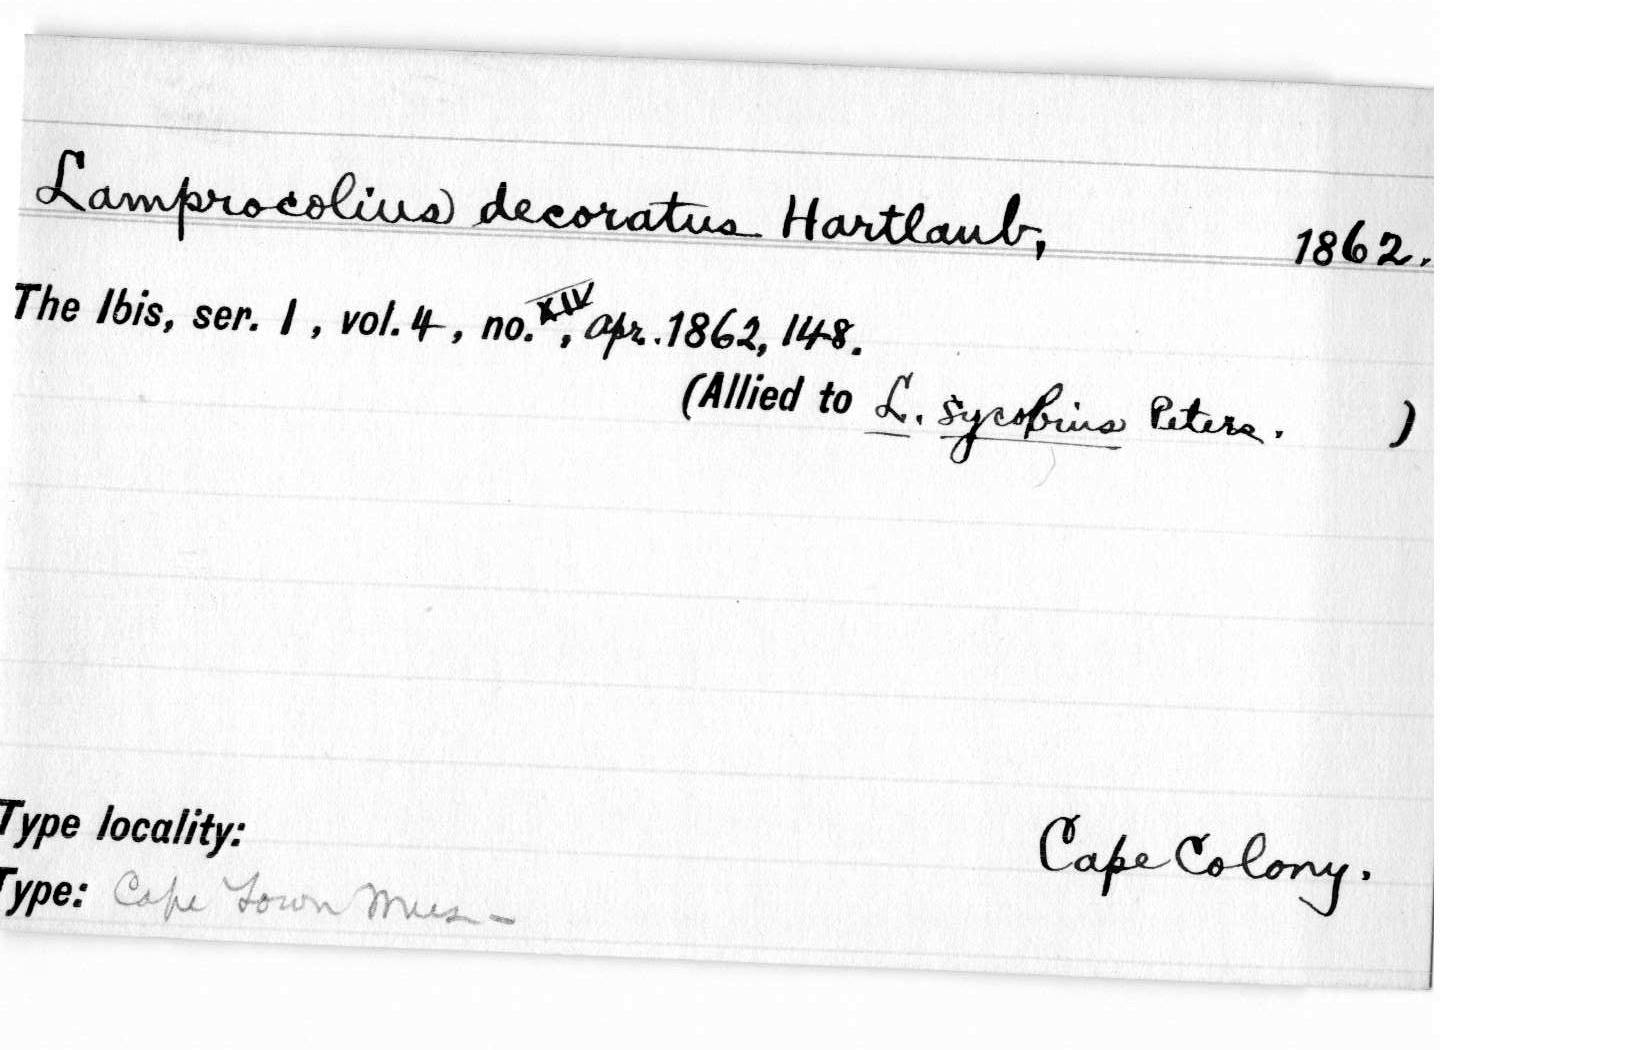 Lamprocolius decoratus Hartlaub, 1862.
The Ibis, ser. 1, vol. 4, no. XIV, Apr. 1862, 148.
(Allied to L. sycobius Peters. )
Type locality: Cape Colony.
Type: Cape Town Mus-